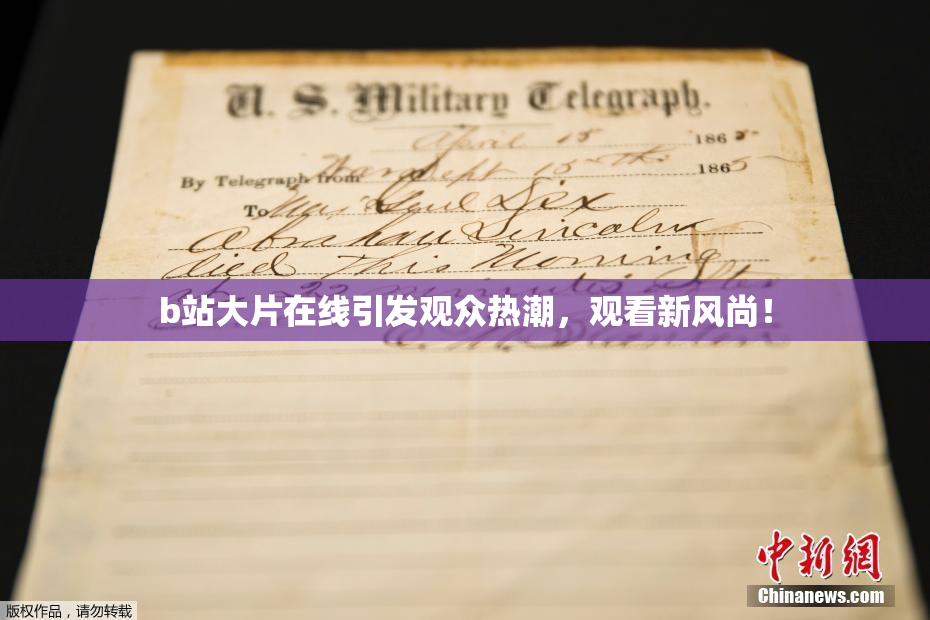 U. S. Military Telegraph.
April 15 1865
By Telegraph from Wash Dept 15th 1865
To Maj Genl Dix
Abraham Lincoln
died This Morning
at 22 minutes after
b站大片在线引发观众热潮，观看新风尚！
E. M. Stanton
中新网
Chinanews.com
版权作品，请勿转载